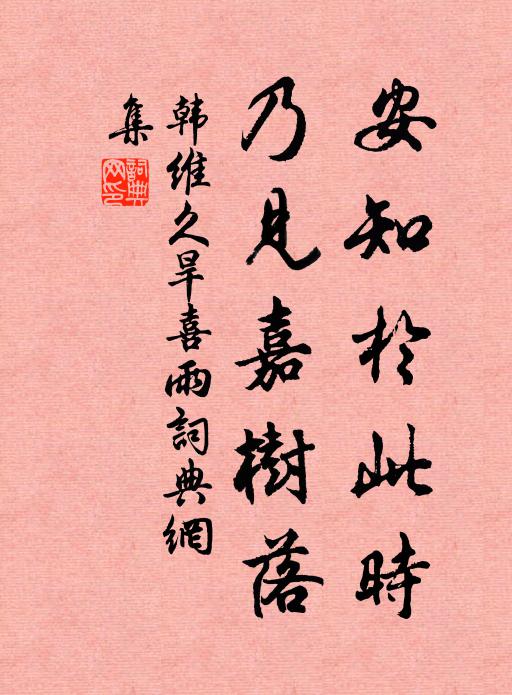 安知於此時
乃見嘉樹落
韩維久旱喜雨詞典網
集
詞典网印